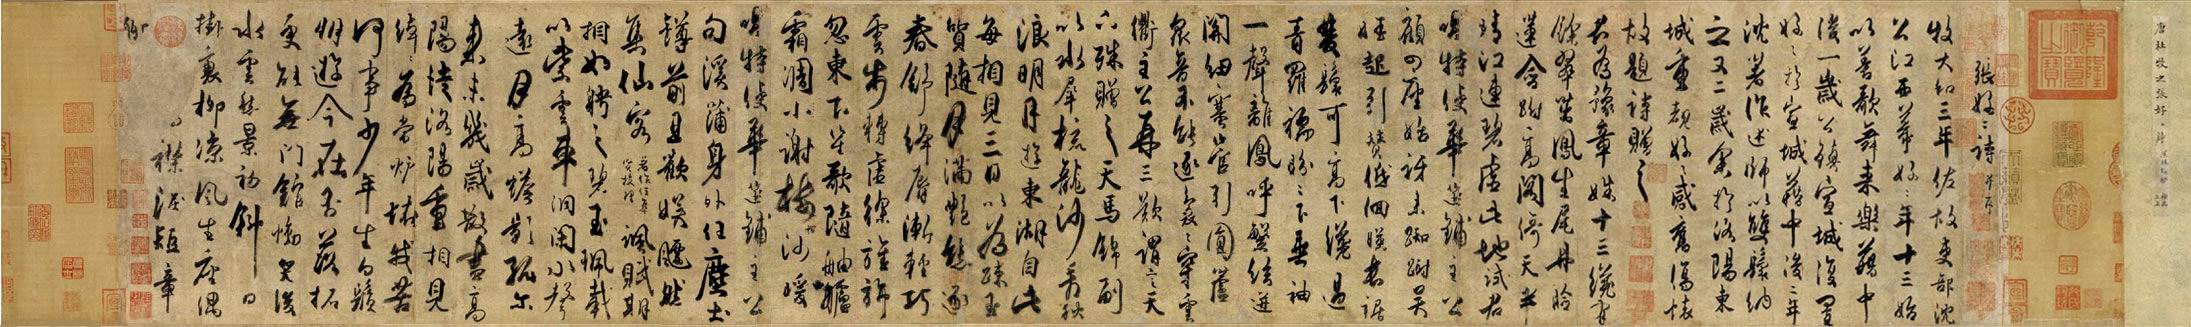 唐杜牧之張好好詩
乾隆御覽之寶
張好好詩并序
牧大和三年佐故吏部沈
公江西幕好好年十三始
以善歌舞來樂籍中
後一歲公鎮宣城復置
好好於宣城籍中後二年
沈著作述師以雙鬟納
之又二歲余於洛陽東
城重覩好好感舊傷懷
故題詩贈之
君為豫章姝十三纔有
餘翠茁鳳生尾丹臉
蓮含跗高閣倚天半
晴江連碧虛此地試君
唱特使華筵鋪主公
顧四座始訝來踟躕吳
娃起引贊低佪暎長裾
雙鬟可高下纔過
青羅襦盼盼下垂袖
一聲離鳳呼繁絃迸
關紐塞管引圓蘆
衆音不能逐裊裊穿雲
衢主公再三歎謂言天
下殊贈之天馬錦副
以水犀梳龍沙看秋
浪明月遊東湖自此
每相見三日以為疎玉
質隨月滿豔態逐
春舒絳脣漸輕巧
雲步轉虛徐旌旆
忽東下笙歌隨舳艫
霜凋小謝樹沙暖
唱特使華筵鋪主公
句溪蒲身外任塵土
罇前且歡娛飄然
集仙客著作任集賢校理諷賦期
相如聘之碧玉珮載
以紫雲車洞閉水聲
遠月高蟾影孤爾
來未幾歲散盡高
陽徒洛陽重相見
綽綽為當壚怪我苦
何事少年生白髭
朋遊今在否落拓
更能無門館慟哭後
水雲秋景初斜日
掛衰柳涼風生座偶
襟淚短章
聊